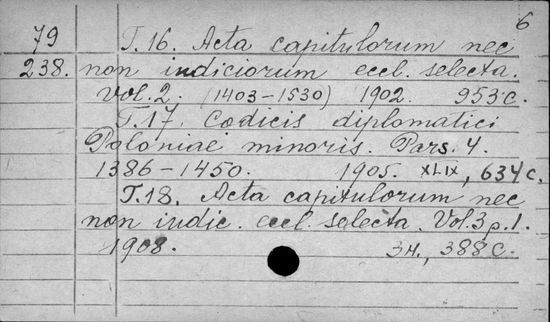 6
79 T.16. Acta capitulorum nec
238. non iudiciorum eccl. selecta.
Vol. 2. (1403-1530) 1902. 953 c.
T.17. Codicis diplomatici
Poloniae minoris. Pars. 4.
1386-1450. 1905. XLIX, 634 c.
T.18. Acta capitulorum nec
non iudic. eccl. selecta. Vol. 3 p. 1.
1908. 3н., 388 c.